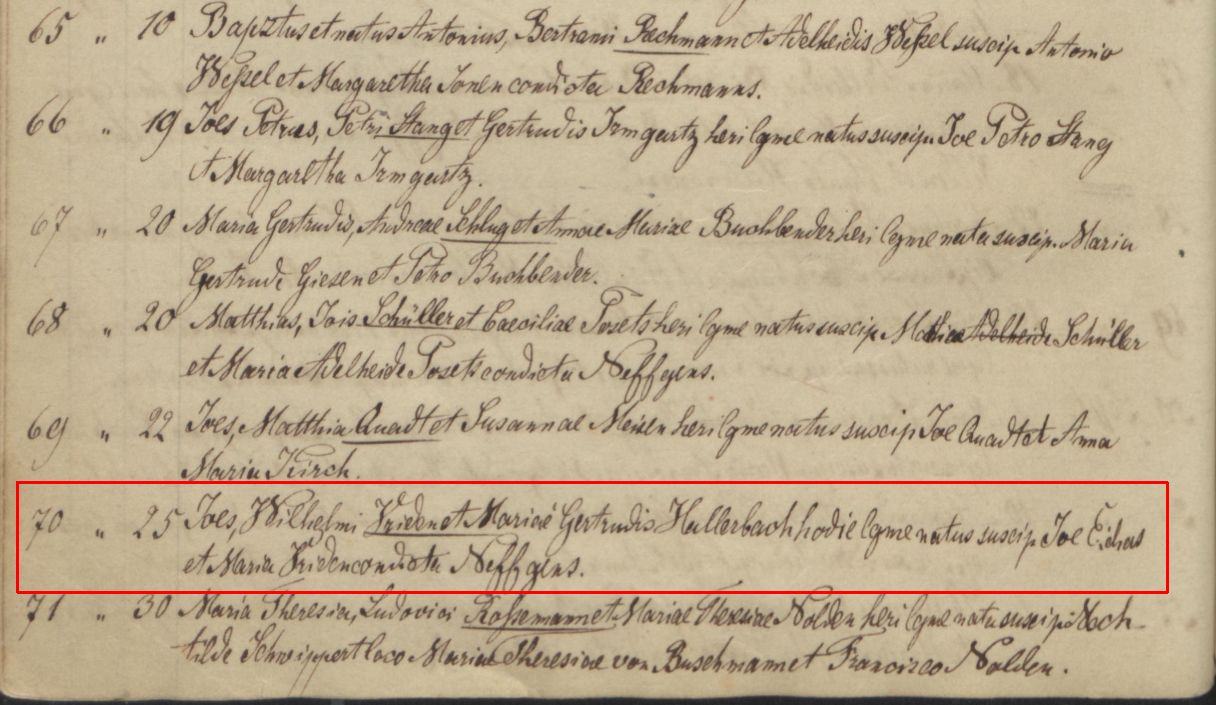 65 " 10 Bapztus et natus Antonius, Bertrami Rechmann et Adelheidis Weßel suscip Antonio
Weßel et Margaretha Jonen condicta Rechmanns.
66 " 19 Joes Petrus, Petri Stang et Gertrudis Irmgartz heri lgme natus suscip. Joe Petro Stang
et Margaretha Irmgartz.
67 " 20 Maria Gertrudis, Andreae Schlug et Annae Mariae Buchbender heri lgme nata suscip. Maria
Gertrude Giesen et Petro Buchbender.
68 " 20 Matthias, Jois Schüller et Caeciliae Josets heri lgme natus suscip Schüller
et Maria Adelheide Josets condicta Neffgens.
69 " 22 Joes, Matthia Quadt et Susannae Meisen heri lgme natus suscip Joe Quadt et Anna
Maria Kirch.
70 " 25 Joes, Wilhelmi Vriden et Mariae Gertrudis Hallerbach hodie lgme natus suscip Joe Eichas
et Maria Vriden condicta Neffgens.
71 " 30 Maria Theresia, Ludovici Roßemann et Mariae Theresiae Nolden heri lgme nata suscip. Mech-
tilde Schwippert loco Mariae Theresiae von Buschmann et Francisco Nolden.